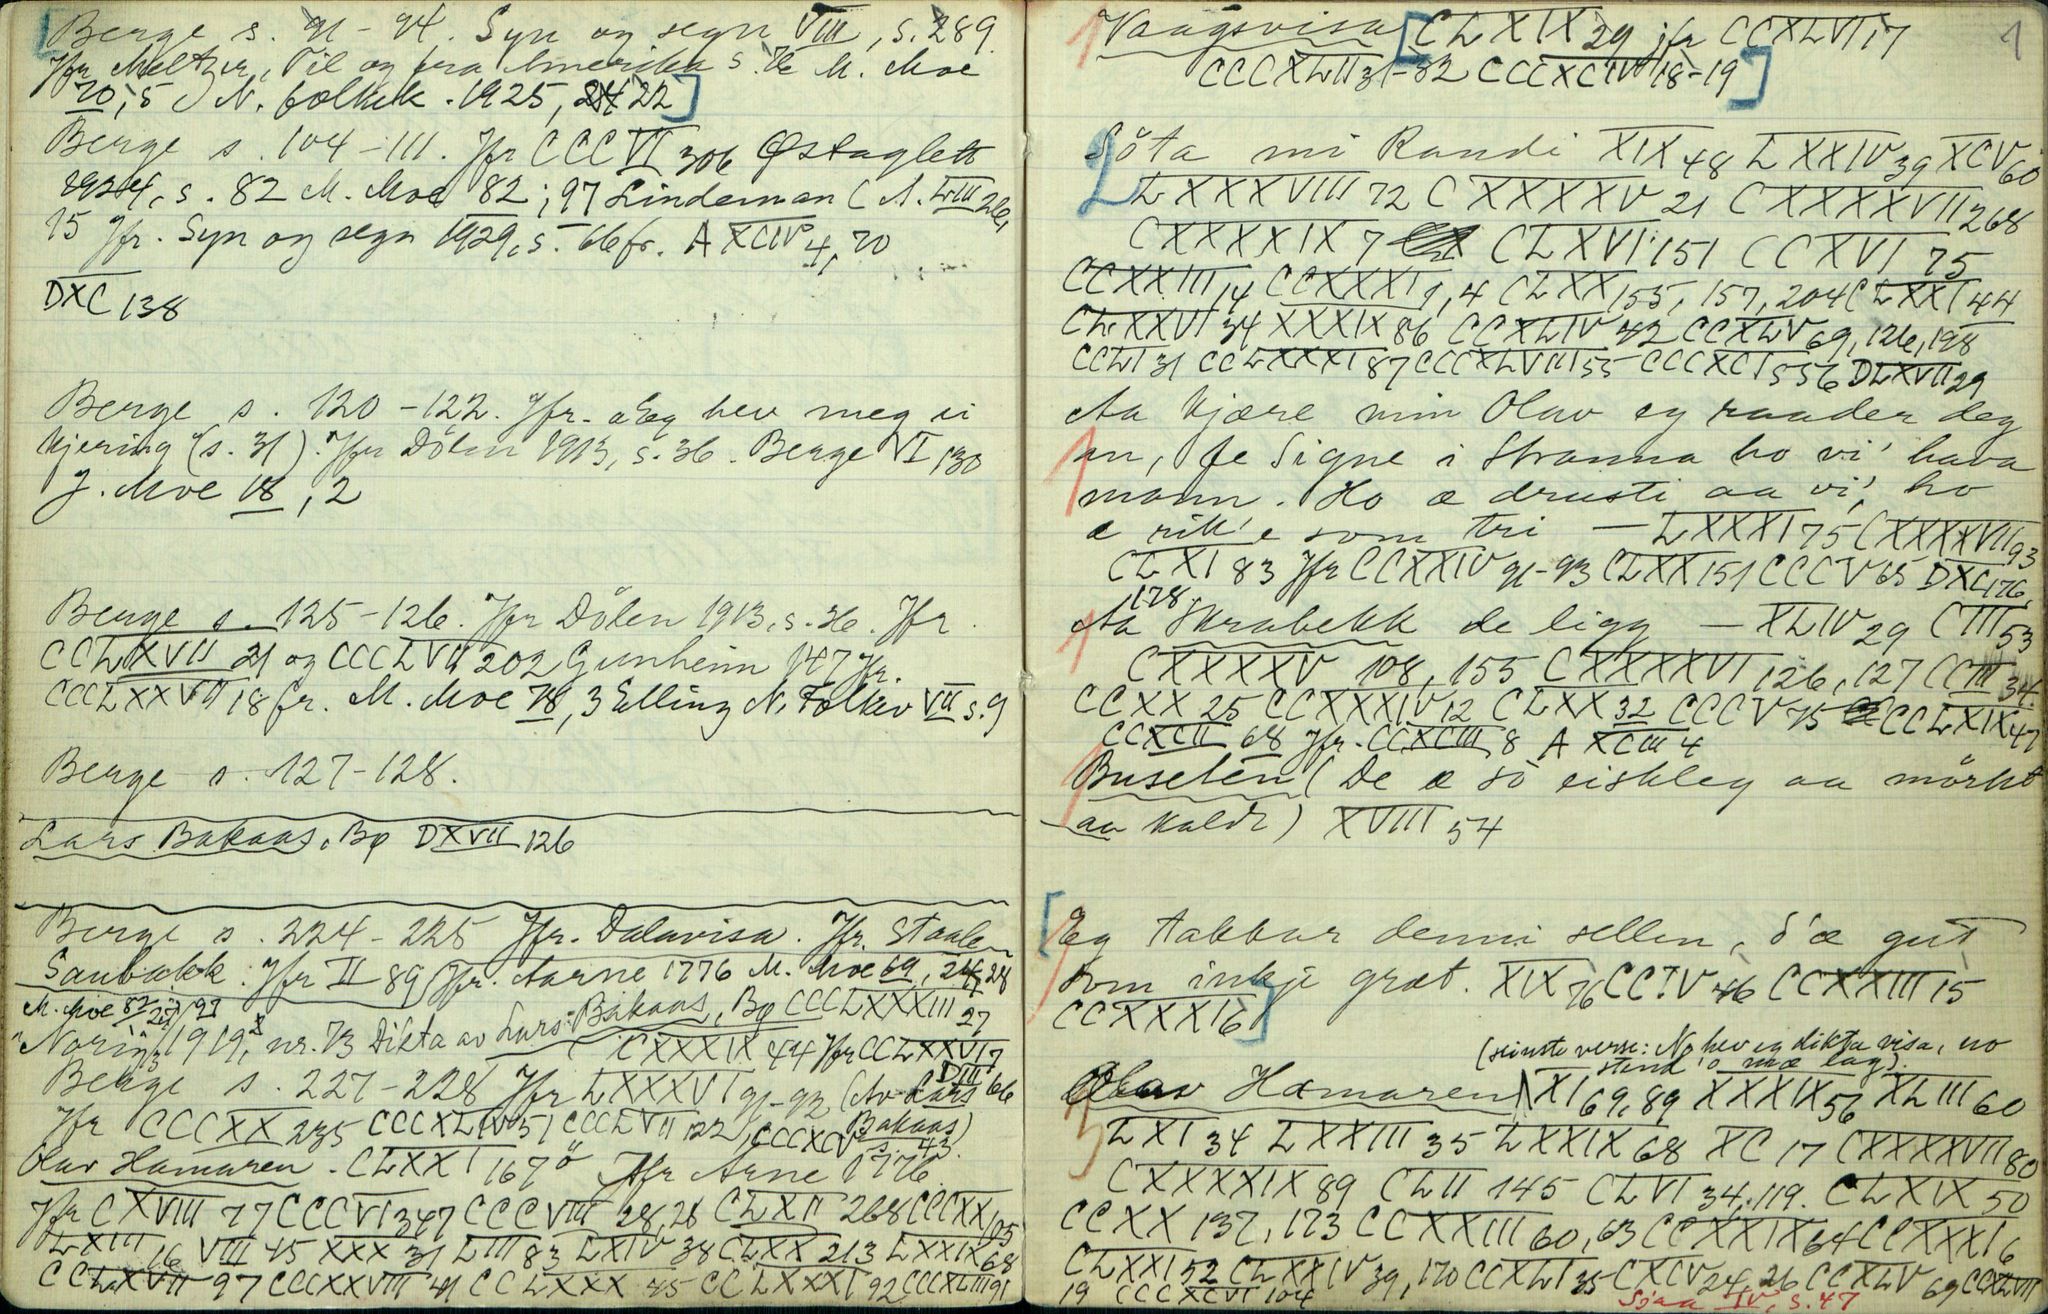 Berge s. 91-94. Syn og segn VIII, s. 289.
Jfr Meltzer, Til og fra Amerika s. M. Moe
70, 5 N. folkek. 1925, 22
Berge s. 104-111. Jfr CCCVI 306 Østaglett
1924, s. 82 M. Moe 82; 97 Lindeman (A. LIII 261
15 Jfr. Syn og segn 1929, s. 66 fr. A XCIV 4, 70
DXC 138
Berge s. 120-122. Jfr. Eg hev meg ei
kjering (s. 31). Jfr Dölen 1913, s. 36. Berge VI 130
J. Moe 18, 2
Berge s. 125-126. Jfr Dölen 1913, s. 36. Jfr.
CCLXVII 21 og CCCLVII 202 Gunheim 147 Jfr.
CCCLXXVII 18 fr. M. Moe 78, 3 Elling N. Folkev VII s. 9
Berge s. 127-128.
Lars Bakaas, Bø DXVII 126
Berge s. 224-225 Jfr. Dalavisa. Jfr. Staale
Saubakk. Jfr II 89 Jfr. Aarne 1776 M. Moe 69, 24, 28
M. Moe 82
"Norig" 1919, nr. 73 Dikta av Lars Bakaas, Bø CCCLXXXIII 27
CXXXIX 44 Jfr CCLXXVI 7
Berge s. 227-228 Jfr LXXXVI 91-92 (Av Lars DIII 66
Bakaas)
Jfr CCCXX 235 CCCXLIV 51 CCCLVII 122 CCCXCV s. 43.
Olav Hamaren. CLXXI 167 Jfr Arne 1776.
Jfr CXVIII 77 CCCVI 347 CCCVIII 28, 28 CLXII 268 CCCXX 105
LXIII 16 VIII 45 XXX 31 LIII 83 LXIV 38 CLXX 213 LXXIX 68
CCLXVII 97 CCCXXVIII 41 CCLXXX 45 CCLXXXI 92 CCCXLIII 91
1
Vaagsvisa [CLXIX 29 jfr CCXLVI 17
CCCXLII 31-82 CCCXCIV 18-19]
2
Söta mi Randi XIX 48 LXXIV 39 XCV 60
LXXXVIII 72 CXXXXV 21 CXXXXVII 268
CXXXXIX 7 CLXVI 151 CCXVI 75
CCXXIII 14 CCXXXI 1, 4 CLXX 155, 157, 204 CLXXI 44
CLXXVI 34 XXXIX 86 CCXLIV 42 CCXLV 69, 126, 198
CCLI 31 CCLXXXI 87 CCCXLVIII 55 CCCXCI 556 DLXVII 29
Aa kjære min Olav eg raader deg
an, fe Signe i Stranna ho vi' hava
mann. Ho æ drusti aa vi', ho
æ rik'e som tri — LXXXI 75 CXXXXVII 93
CLXI 83 Jfr CCXXIV 91-93 CLXX 151 CCCV 65 DXC 176,
178.
Aa Skrabekk de ligg — XLIV 29 CIII 53
CXXXXV 108, 155 CXXXXVI 126, 127 CCIII 34.
CCXX 25 CCXXXIV 12 CLXX 32 CCCV 75 CCLXIX 47
CCXCII 68 Jfr. CCXCIII 8 A XCIII 4
Buseten (De æ so eiskleg aa mörkt
aa kaldt) XVIII 54
[Eg takkar denni sellen, d'æ gut
som inkje græt. XIX 76 CCIV 46 CCXXIII 15
CCXXXI 6]
(siuste verse: No hev eg dikta visa, no
stend 'o mæ lag).
Olav Hamaren XI 69, 89 XXXIX 56 XLIII 60
LXI 34 LXXIII 35 LXXIX 68 XC 17 CXXXXVII 80
CXXXXIX 89 CLII 145 CLVI 34, 119. CLXIX 50
CCXX 137, 173 CCXXIII 60, 63 CCXXIX 64 CCXXXI 6
CLXXI 52 CLXXIV 39, 170 CCXLI 35 CXCV 24, 26 CCXLV 69 CCXLVII
19 CCCXCVI 104
Sjaa IV, s. 47